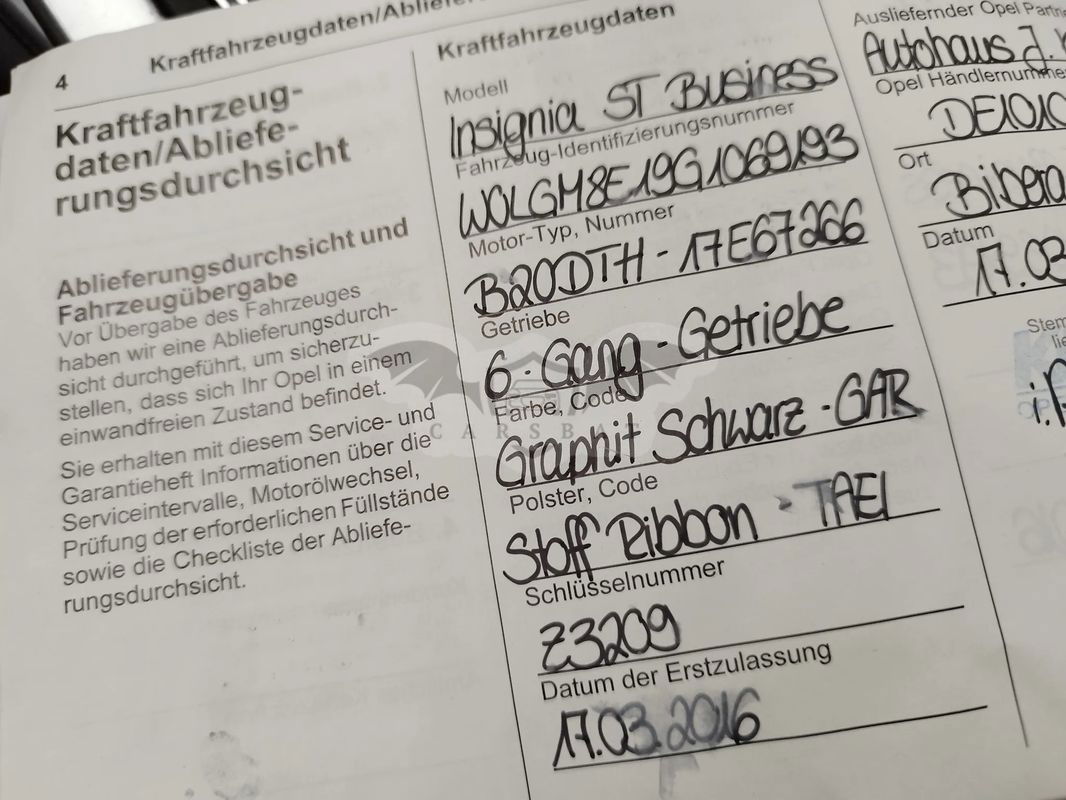 4
Kraftfahrzeugdaten/Ablieferu
Kraftfahrzeug-
daten/Abliefe-
rungsdurchsicht
Ablieferungsdurchsicht und
Fahrzeugübergabe
Vor Übergabe des Fahrzeuges
haben wir eine Ablieferungsdurch-
sicht durchgeführt, um sicherzu-
stellen, dass sich Ihr Opel in einem
einwandfreien Zustand befindet.
Sie erhalten mit diesem Service- und
Garantieheft Informationen über die
Serviceintervalle, Motorölwechsel,
Prüfung der erforderlichen Füllstände
sowie die Checkliste der Abliefe-
rungsdurchsicht.
Kraftfahrzeugdaten
Modell
Insignia ST Business
Fahrzeug-Identifizierungsnummer
W0LGM8E19G1069193
Motor-Typ, Nummer
B20DTH - 17E67266
Getriebe
6-Gang-Getriebe
Farbe, Code
Graphit Schwarz - GAR
Polster, Code
Stoff Ribbon - TAEI
Schlüsselnummer
Z3209
Datum der Erstzulassung
17.03.2016
Ausliefernder Opel Partne
Autohaus J.
Opel Händlernumme
DE1010
Ort
Bibera
Datum
17.03
Stem
lie
i.A
CARSBAT